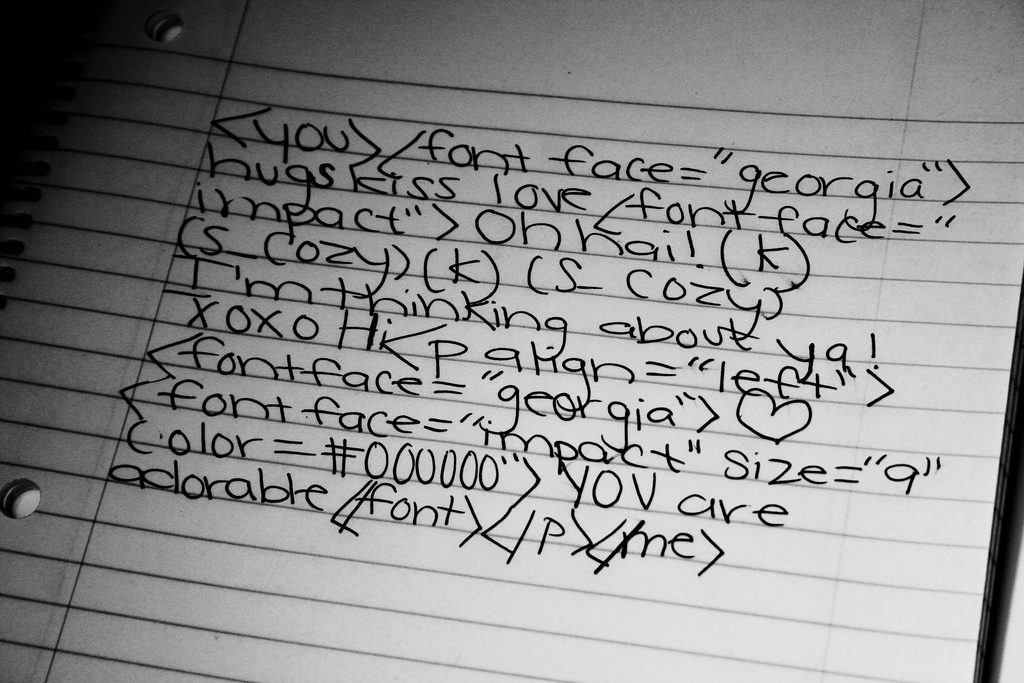 <you></font face="georgia">
hugs kiss love </font face="
impact"> Oh hai! (k)
(S_Cozy) (k) (S_Cozy)
I'm thinking about ya!
xoxo Hi <p align="left">
<font face="georgia"> ♡
<font face="impact" size="9"
Color=#000000"> YOU are
adorable </font></p></me>